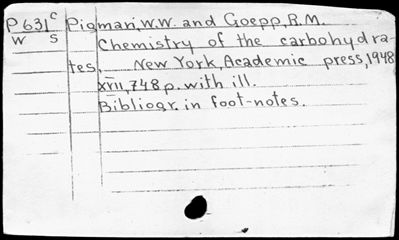 P631c Pigman, W.W. and Goepp, R.M.
W S Chemistry of the carbohydra-
tes, New York, Academic press, 1948
XVII, 748 p. with ill.
Bibliogr. in foot-notes.